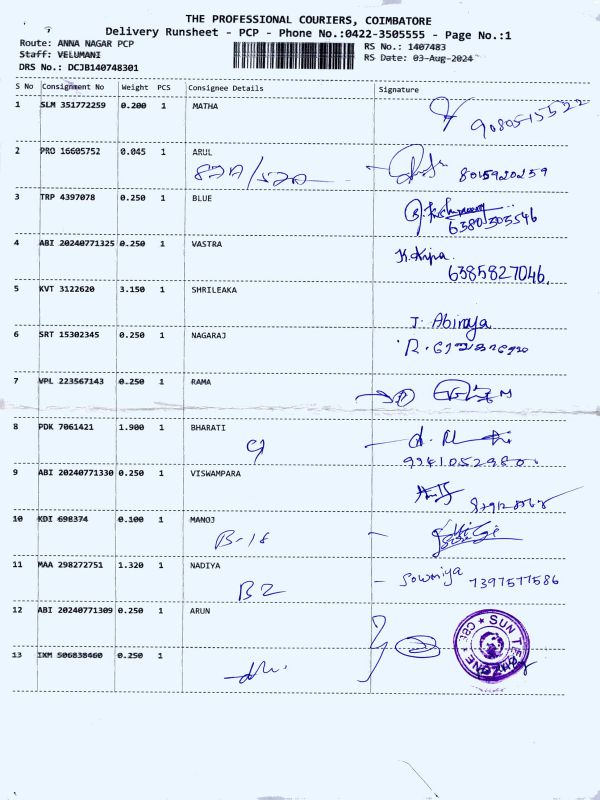 THE PROFESSIONAL COURIERS, COIMBATORE
Delivery Runsheet - PCP - Phone No.:0422-3505555 - Page No.:1
Route: ANNA NAGAR PCP RS No.: 1407483
Staff: VELUMANI RS Date: 03-Aug-2024
DRS No.: DCJB140748301
S No Consignment No Weight PCS Consignee Details Signature
1 SLM 351772259 0.200 1 MATHA
2 PRO 16605752 0.045 1 ARUL
8015920259
3 TRP 4397078 0.250 1 BLUE
6380303546
4 ABI 20240771325 0.250 1 VASTRA
K. Kripa.
6385827046.
5 KVT 3122620 3.150 1 SHRILEAKA
J. Abinaya
6 SRT 15302345 0.250 1 NAGARAJ
7 VPL 223567143 0.250 1 RAMA
8 PDK 7061421 1.900 1 BHARATI
9941052980.
9 ABI 20240771330 0.250 1 VISWAMPARA
10 KDI 698374 0.100 1 MANOJ
B-18
11 MAA 298272751 1.320 1 NADIYA
B2 - Sowmiya 7397577586
12 ABI 20240771309 0.250 1 ARUN
13 IXM 506838460 0.250 1